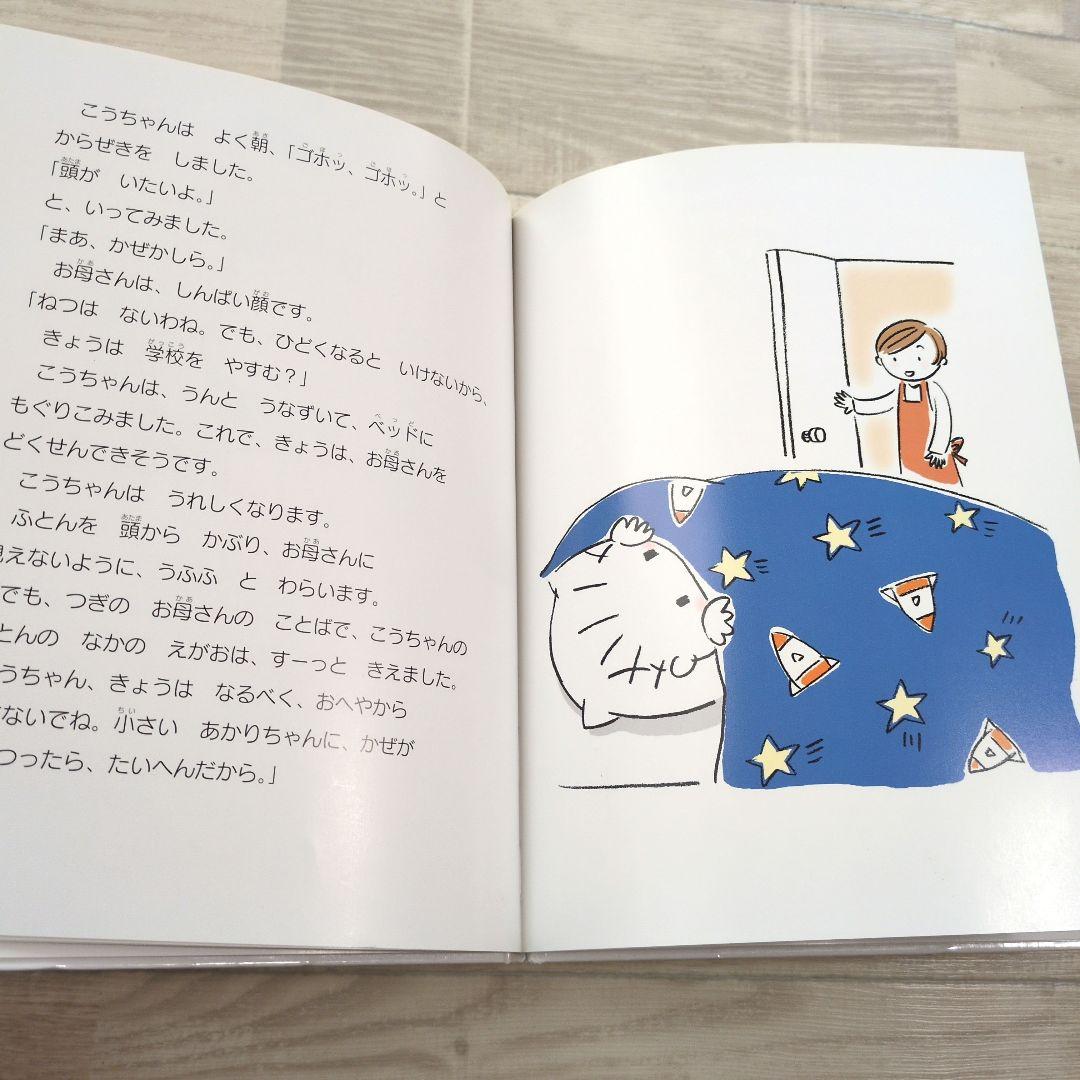 こうちゃんは　よく朝、「ゴホッ、ゴホッ。」と
からぜきを　しました。
「頭が　いたいよ。」
と、いってみました。
「まあ、かぜかしら。」
お母さんは、しんぱい顔です。
「ねつは　ないわね。でも、ひどくなると　いけないから、
きょうは　学校を　やすむ？」
こうちゃんは、うんと　うなずいて、ベッドに
もぐりこみました。これで、きょうは、お母さんを
どくせんできそうです。
こうちゃんは　うれしくなります。
ふとんを　頭から　かぶり、お母さんに
見えないように、うふふ　と　わらいます。
でも、つぎの　お母さんの　ことばで、こうちゃんの
とんの　なかの　えがおは、すーっと　きえました。
うちゃん、きょうは　なるべく、おへやから
ないでね。小さい　あかりちゃんに、かぜが
つったら、たいへんだから。」